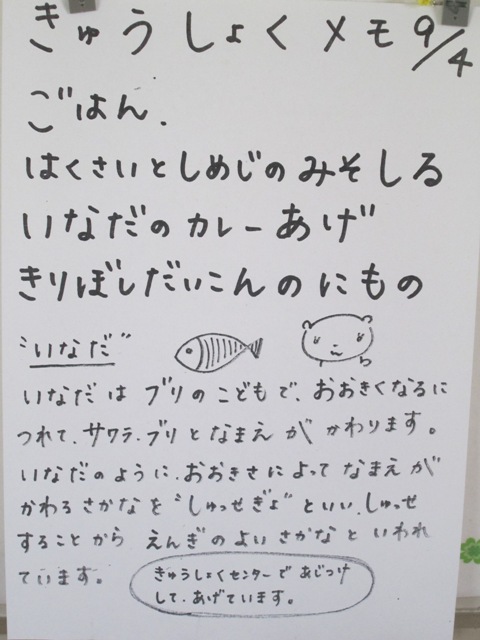 きゅうしょくメモ 9/4
ごはん.
はくさいとしめじのみそしる
いなだのカレーあげ
きりぼしだいこんのにもの
"いなだ"
いなだは ブリのこどもで、おおきくなるに
つれて、サワラ、ブリとなまえが かわります。
いなだのように、おおきさによって なまえが
かわるさかなを "しゅっせぎょ" といい、しゅっせ
することから えんぎのよいさかなと いわれ
ています。
きゅうしょくセンターで あじつけ
して、あげています。